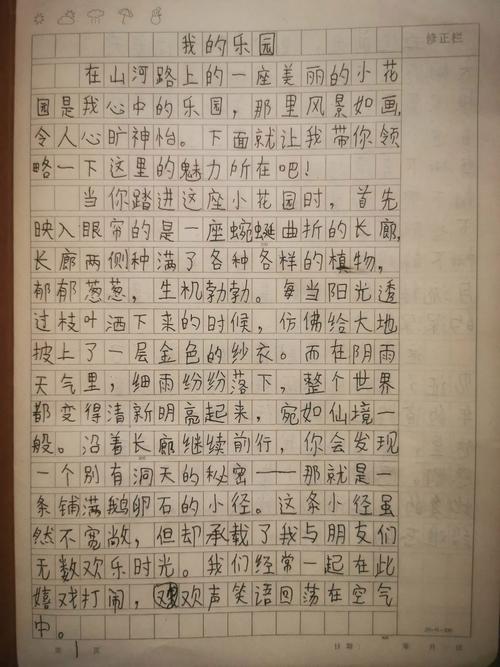 修正栏
我的乐园
在山河路上的一座美丽的小花
园是我心中的乐园，那里风景如画，
令人心旷神怡。下面就让我带你领
略一下这里的魅力所在吧！
当你踏进这座小花园时，首先
映入眼帘的是一座蜿蜒曲折的长廊，
长廊两侧种满了各种各样的植物，
郁郁葱葱，生机勃勃。每当阳光透
过枝叶洒下来的时候，仿佛给大地
披上了一层金色的纱衣。而在阴雨
天气里，细雨纷纷落下，整个世界
都变得清新明亮起来，宛如仙境一
般。沿着长廊继续前行，你会发现
一个别有洞天的秘密——那就是一
条铺满鹅卵石的小径。这条小径虽
然不宽敞，但却承载了我与朋友们
无数欢乐时光。我们经常一起在此
嬉戏打闹，欢声笑语回荡在空气
中。
第 1 页 日期： 年 月 日